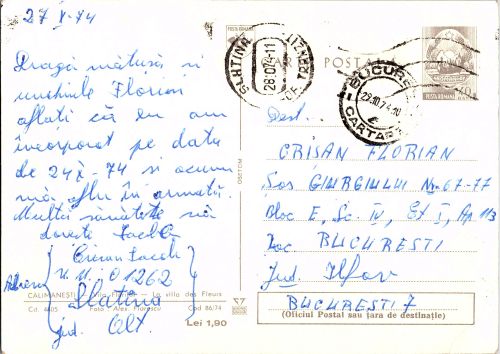 27 X-74
Dragă mătușă și
unchiule Florian
aflați că eu am
încorporat pe data
de 24 X-74 și acum
mă aflu în armată.
Multă sănătate vă
dorește Iacob
Crișan Iacob
U.M. 01262
Slatina
jud. Olt
CALIMANEȘTI
La villa des Fleurs
Cd. 6605 Foto: Alex. Florescu Cod 86/74
Lei 1,90
OSETCM
CARTE POSTALĂ
POSTA ROMANA
SLATINA
28.10.74-11
BUCUREȘTI
29.10.74.10
CARTARE
POSTA ROMANA 40
Dest.
CRIȘAN FLORIAN
Șos GIURGIULUI No 67-77
Bloc E, Sc. IV, Et I, Ap 113
Loc BUCUREȘTI
Jud. Ilfov
BUCUREȘTI 7
(Oficiul Postal sau țara de destinație)